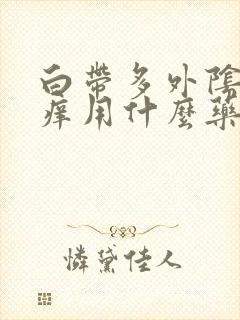 白帶多外陰
痒用什麼藥
憐黛佳人